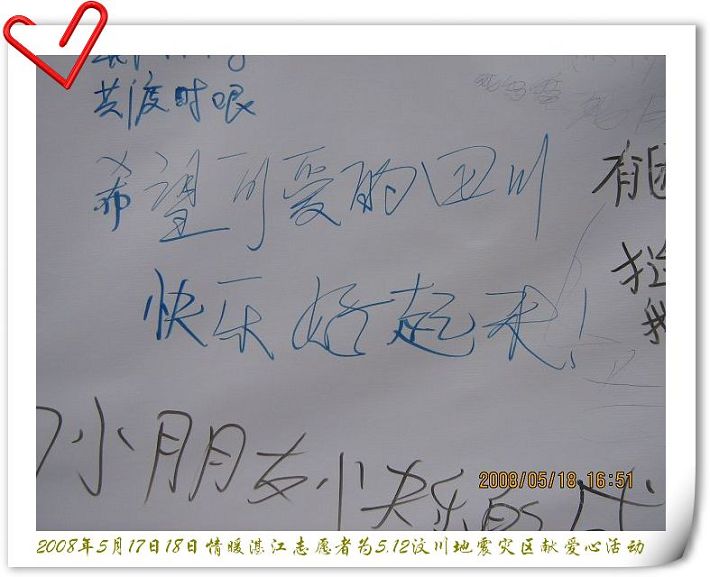 共度时艰
希望可爱的四川
快乐好起来！
有
小朋友快乐的
2008/05/18 16:51
2008年5月17日18日情暖湛江志愿者为5.12汶川地震灾区献爱心活动